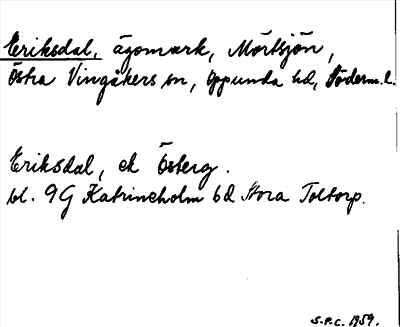 Eriksdal, ägomark, Mörtsjön,
Östra Vingåkers sn, Oppunda hd, Söderm.l.
Eriksdal, ek Österg.
bl. 9G Katrineholm 6d Stora Toltorp.
S.P.C. 1959.